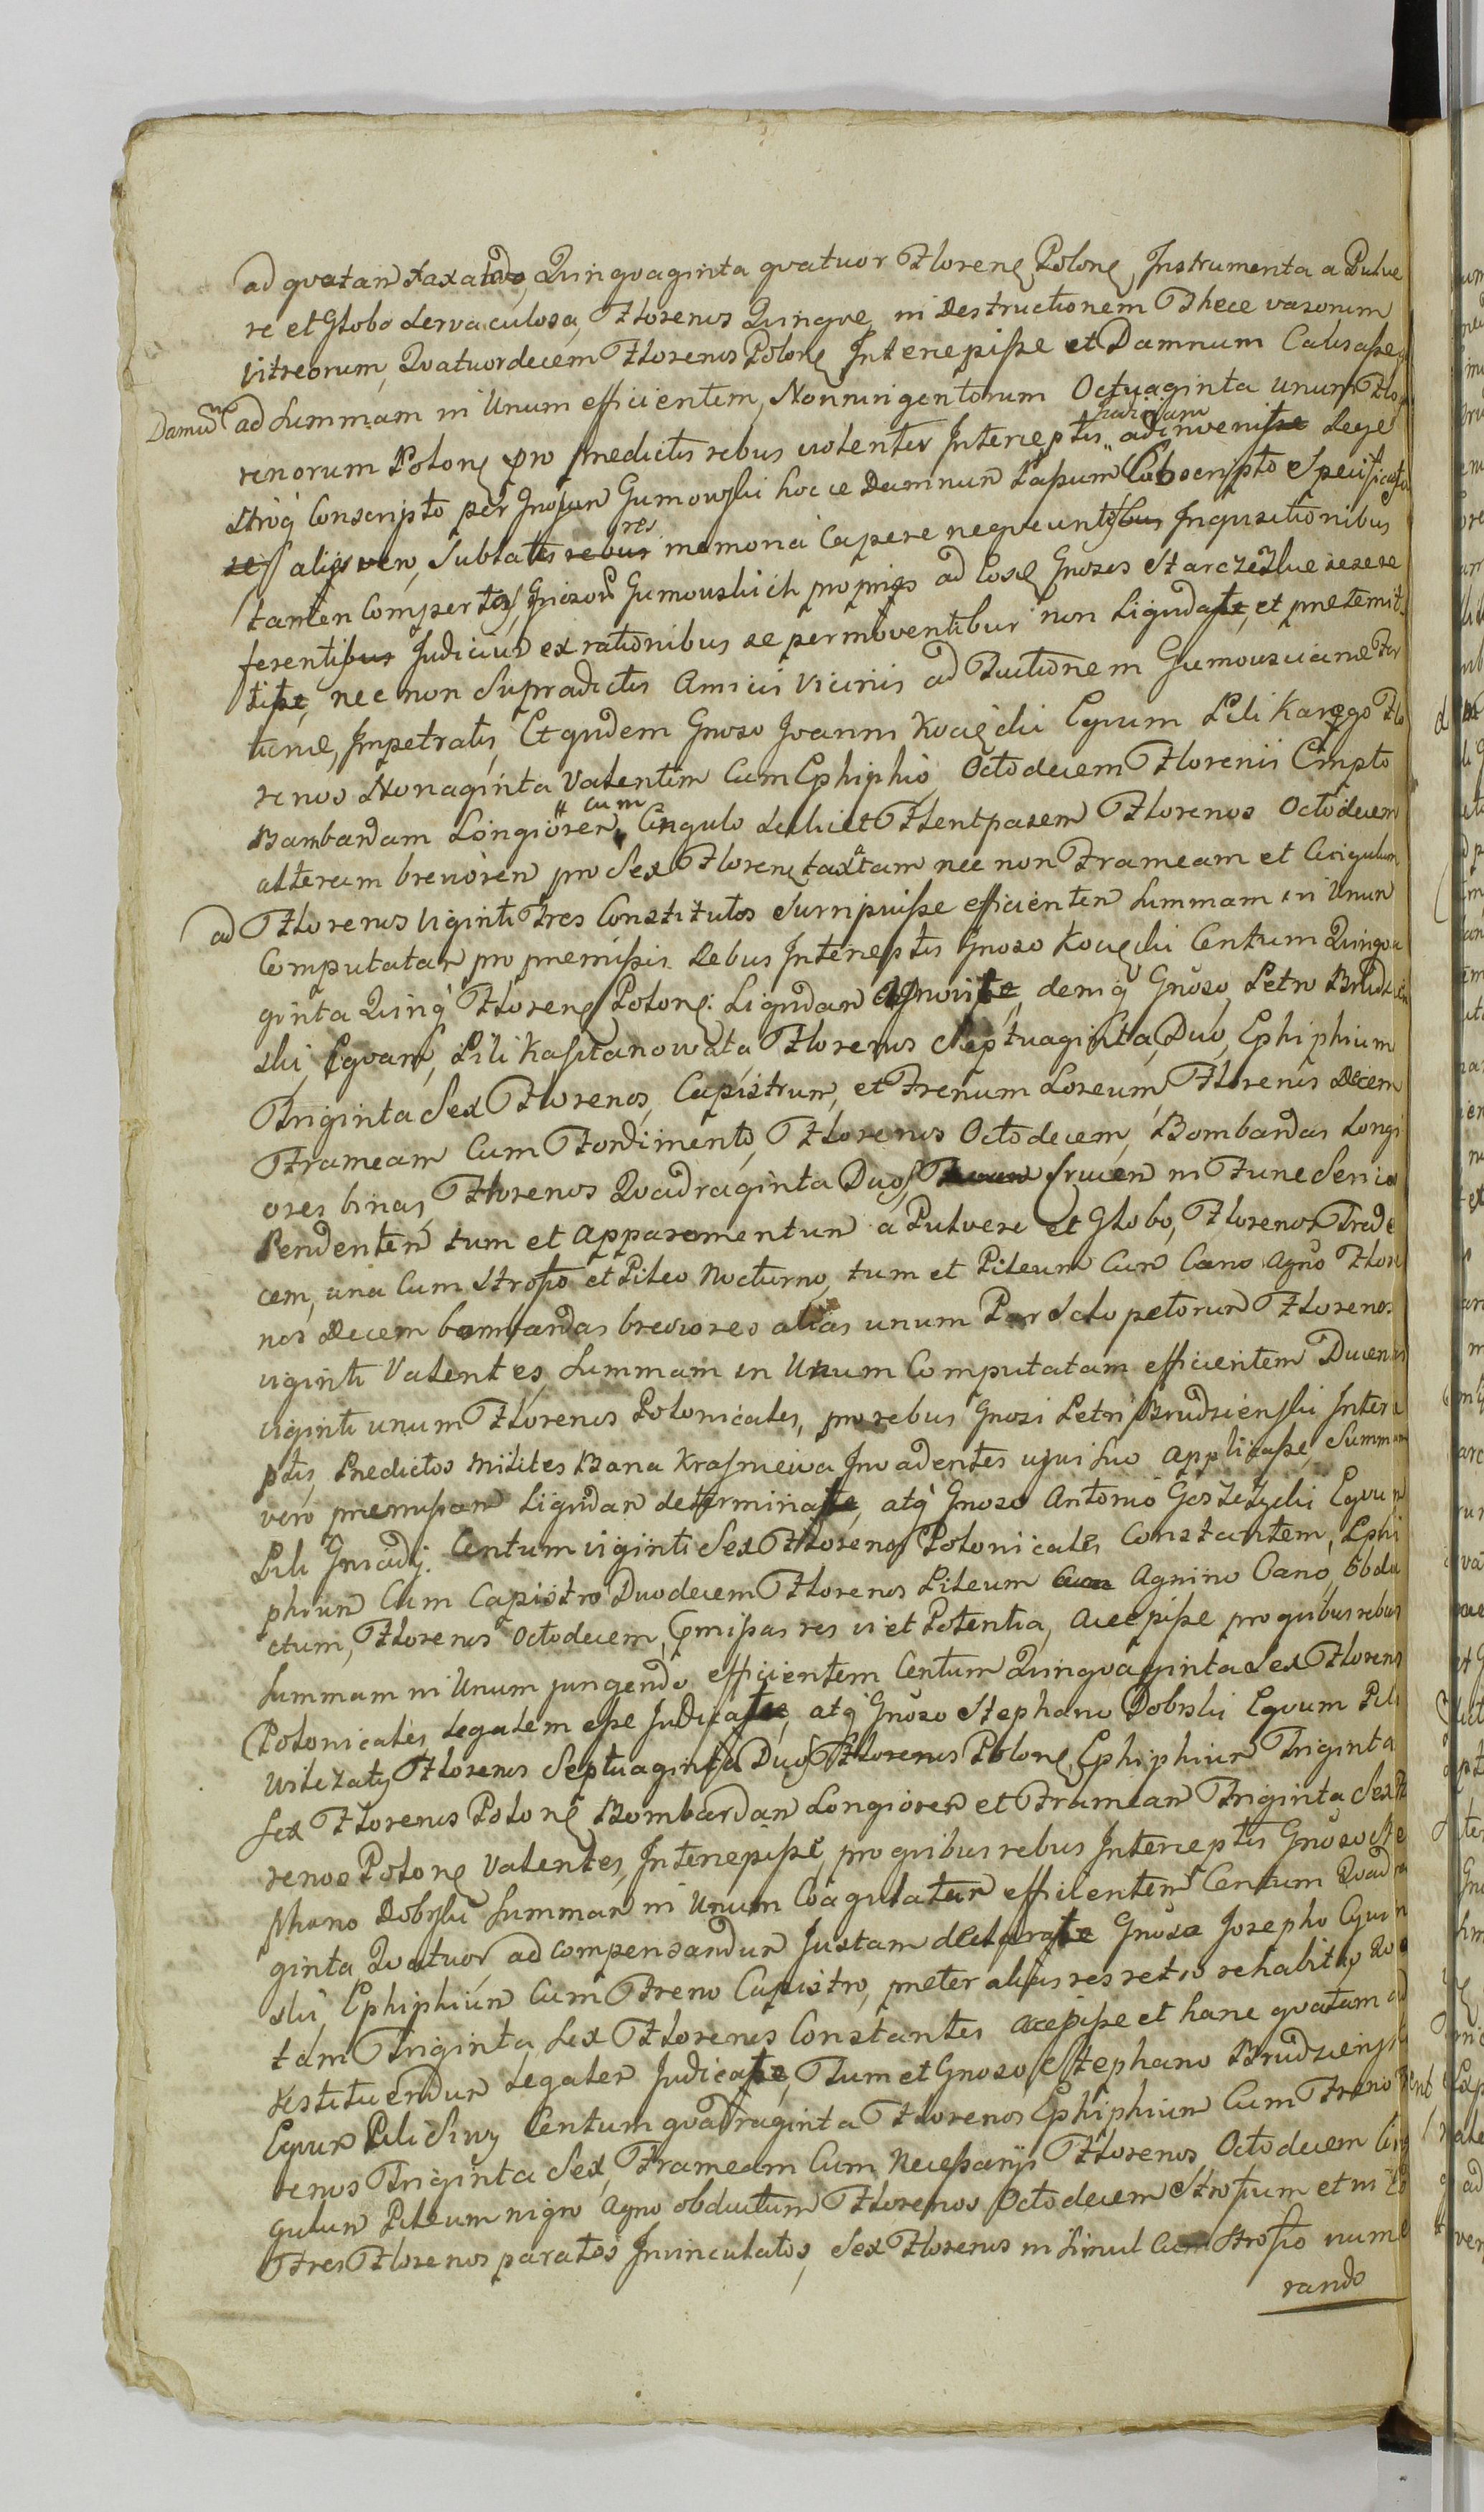 ad qvotan taxatas, Quinqvaginta qvatuor Florenę Polonę, Instrumenta a Pulve
re et Globo Florenos Qvinqve, in Destructionem Thece vasorum
vitreorum, Qvatuordecem Florenos Polonę Intercepisse et Damnum Causasse,
Damnū ad Summam in Unum efficientem, Nonningentorum Octuaginta unum Flo
renorum Polonę pro predictis rebus violenter Interceptis " adinvenisse Lege
Conscripto per Gnosum Gumowski hocce Damnum Specificatis
alijs vero, Sublatis rebus res memoria Capere neqveuntibus Inqvisitionibus
tamen Compertis, Gumowskich proprijs ad Gnosos Starczewskie resere
ferentibus Judicium ex rationibus se permoventibus non Liqvidasse, et pretermit
tisse, nec non Supradictis Amicis Vicinis ad Tuitionem Gumousciane For
tune, Impetratis, Et qvidem Gnoso Joanni Kocięcki Eqvum Pili Karego Flo
renos Nonaginta Valentem Cum Ephiphio, Octodecem Florenii Empto
Bambardam Longiorem, " cum Cingulo Flentpasem Florenos Octodecem
alteram breviorem pro Sex Florenę taxatam nec non Frameam et Cingulum
ad Florenos Viginti Tres Constitutos Surripuisse efficientem Summam in Unum
Computatam pro premissis Rebus Interceptis Gnoso Kocięcki Centum Quinqva
ginta Qvinq Florenę Polonę: Liqvidam Agnovisse, deniq Gnoso Petro Brudzień
ski, Eqvam, Pili Kasztanowata Florenos Septuaginta Duo, Ephiphium
Triginta Sex Florenos, Capistrum, et Frenum Loreum, Florenis Decem
Frameam Cum Fordimento, Florenos Octodecem, Bombardas Longi
ores binas, Florenos Qvadraginta Duos, Crucem in Fune Serico
Pendentem tum et Apparamentum a Pulvere et Globo, Florenos Trede
cem, una Cum Stropo et Pileo Nocturno, tum et Pileum Cum Cano Agno Flore
nos Decem bombardas breviores alias unum Par Sclopetorum Florenos
viginti Valentes, Summam in Unum Computatam efficientem Ducentos
viginti unum Florenos Polonicales, pro rebus Gnosi Petri Brudzienski Interce
ptis, Predictos Milites Bana Krasniewa Invadentes usui suo applicasse, Summam
vero premissam Liqvidam determinasse, atq Gnoso Antonio Goszczycki Eqvum
Pili Gniady. Centum viginti Sex Florenos Polonicales Constantem, Ephi
phium Cum Capistro Duodecem Florenos Pileum Agnino Cano, Obdu
ctum, Florenos Octodecem, premissas res vi et Potentia, accepisse pro qvibus rebus
Summam in Unum jungendo efficientem Centum Quinqvaginta Sex Florenos
Polonicales, Legalem esse Judicasse, atq Gnoso Stephano Dobrski Eqvum Pili
Florenos Septuaginta Duo, Florenos Polonę, Ephiphium Triginta
Sex Florenos Polonę Bombardam Longiorem et Frameam Triginta Sex Flo
renos Polonę Valentes, Intercepisse, pro qvibus rebus Interceptis Gnoso Ste
phano Dobrski Summam in Unum Coagulatam efficientem Centum Qvadra
ginta Qvatuor ad compensandum Justam declarasse Gnoso Josepho
ski, Ephiphium Cum Freno Capistro, preter alias res retro rehabitas Qvo
tam Triginta Sex Florenos Constantes accepisse et hanc qvotam ad
restituendum Legalem Judicasse, Tum et Gnoso Stephano Brudzieński
Eqvum Pili Siwy Centum qvadraginta Florenos Ephiphium Cum Freno Flo
renos Triginta Sex, Frameam Cum Necessarijs Florenos Octodecem Cin
gulum Pileum nigro Agno obductum Florenos Octodecem Stropum et in
Tres Florenos paratos Invinculatos, Sex Florenos in Simul Cum Stropo nume
rando